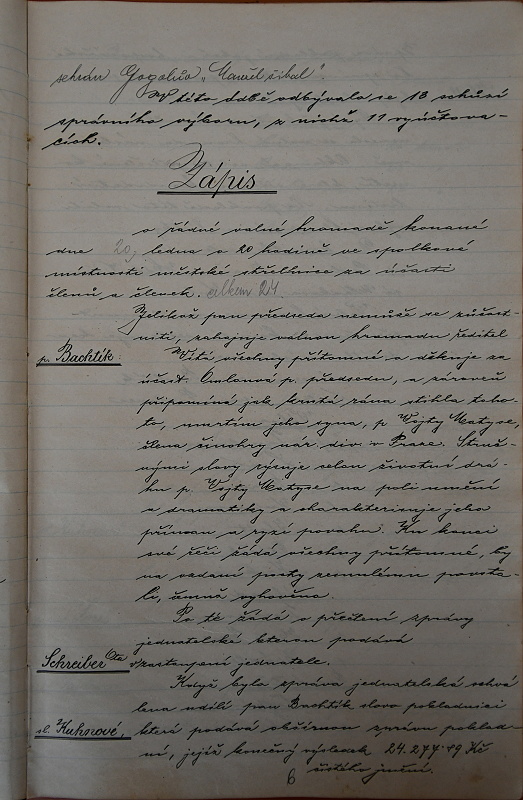 sehrán Gogolův „Mariáš
V této době odbývalo se 18 schůzí
správního výboru, z nichž 11 vyúčtova-
cích.
Zápis
o řádné valné hromadě konané
dne 20. ledna o 20 hodině ve spolkové
místnosti městské střelnice za účasti
členů a členek. celkem 24.
Jelikož pan předseda nemůže se zúčast-
niti, zahajuje valnou hromadu ředitel
p. Bachtík: Vítá všechny přítomné a děkuje za
účast. Omlouvá p. předsedu, a zároveň
připomíná jak krutá rána stihla toho-
to, úmrtím jeho syna, p. Vojty Matyse,
člena činohry nár. div. v Praze. Struč-
nými slovy rýsuje celou životní drá-
hu p. Vojty Matyse na poli umění
a dramatiky a charakterisuje jeho
přímou a ryzí povahu. Ku konci
své řeči žádá všechny přítomné, by
na vzdání pocty zesnulému povsta-
li, čemuž vyhověno.
Po té žádá o přečtení zprávy
jednatelské kterou podává
Schreiber Ota v zastoupení jednatele.
Když byla zpráva jednatelská schvá
lena udílí pan Bachtík slovo pokladnici
sl. Kuhnové, která podává obšírnou zprávu poklad-
ní, jejíž konečný výsledek 24.277.19 Kč
čistého jmění.
6